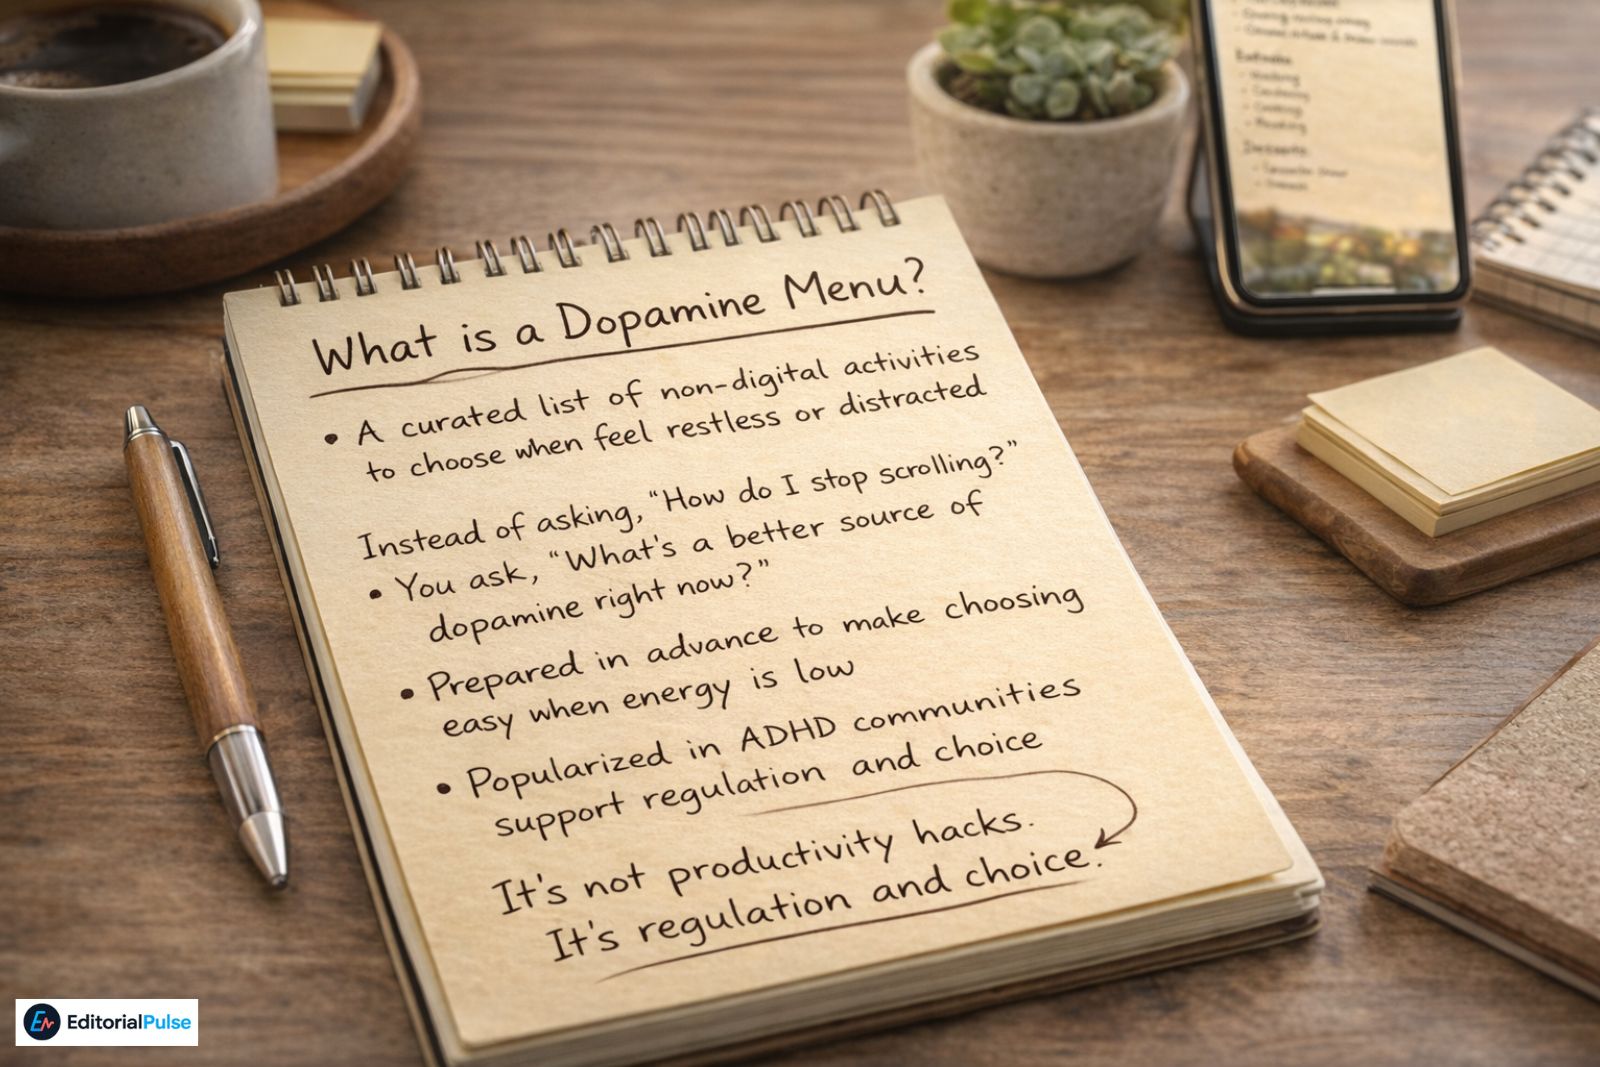 Entrées
Reading
Desserts
What is a Dopamine Menu?
• A curated list of non-digital activities
to choose when feel restless or distracted
Instead of asking, “How do I stop scrolling?”
• You ask, “What's a better source of
dopamine right now?”
• Prepared in advance to make choosing
easy when energy is low
• Popularized in ADHD communities
support regulation and choice
It's not productivity hacks.
It's regulation and choice.
EditorialPulse